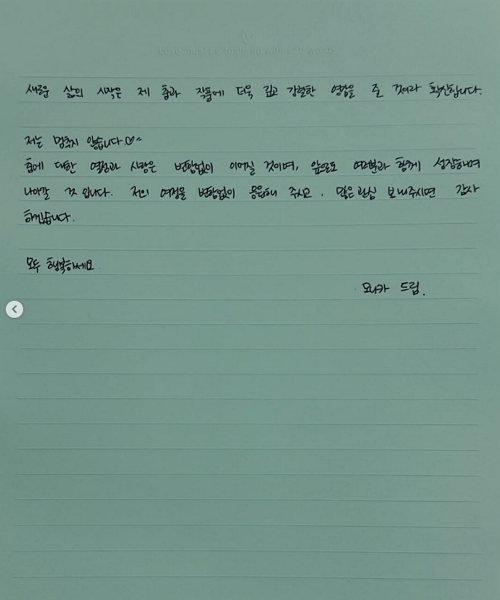 새로운 삶의 시작은 제 춤과 작품에 더욱 깊고 강렬한 영감을 줄 것이라 확신합니다.
저는 멈추지 않습니다
춤에 대한 열정과 사랑은 변함없이 이어질 것이며, 앞으로도 여러분과 함께 성장하며
나아갈 것 입니다. 저의 여정을 변함없이 응원해 주시고, 많은 관심 보내주시면 감사
하겠습니다.
모두 행복하세요
모니카 드림.